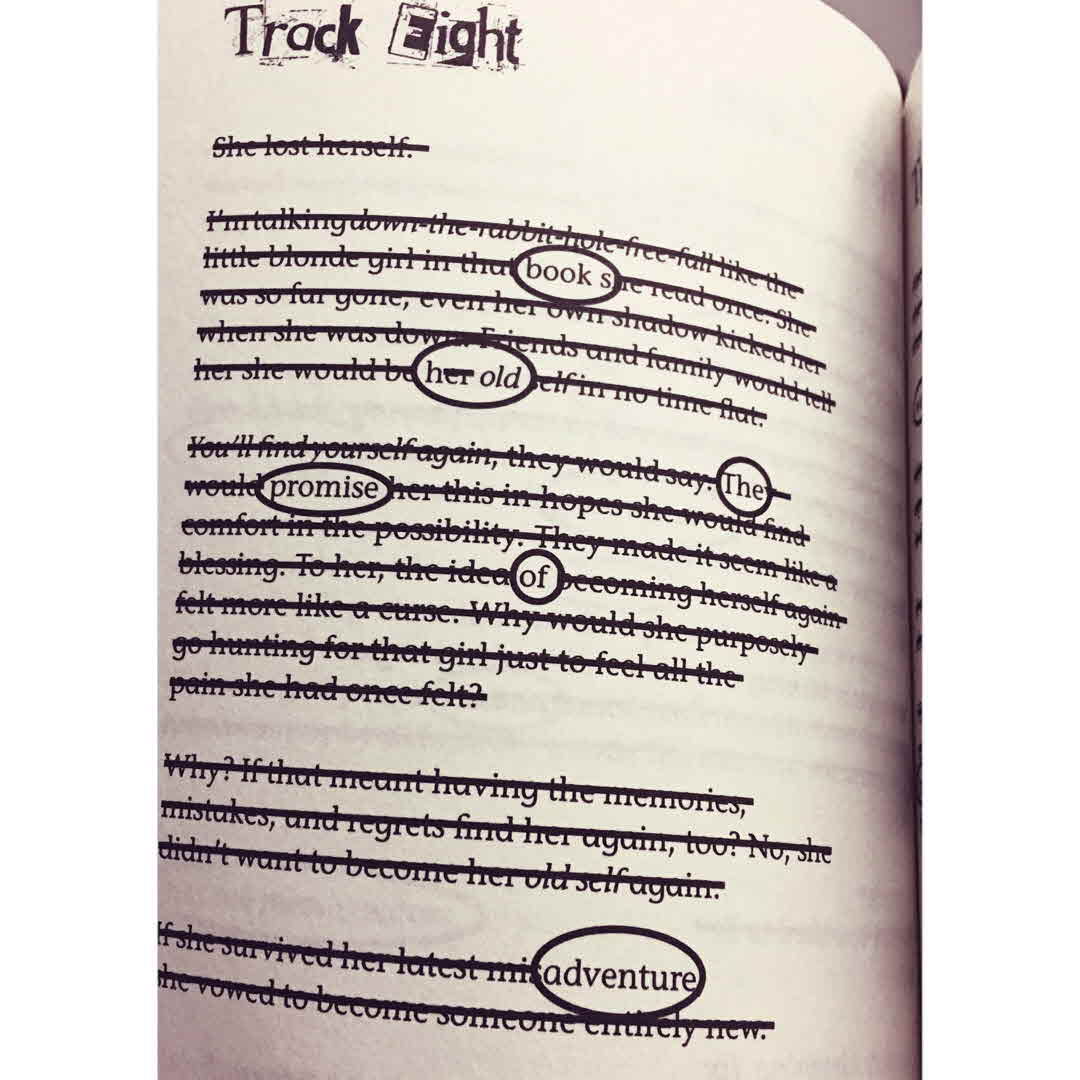 Track Eight
She lost herself.
I'm talking down-the-rabbit-hole-free-fall like the
little blonde girl in that book she read once. She
was so far gone, even her own shadow kicked her
when she was down. Friends and family would tell
her she would be her old self in no time flat.
You'll find yourself again, they would say. They
would promise her this in hopes she would find
comfort in the possibility. They made it seem like a
blessing. To her, the idea of becoming herself again
felt more like a curse. Why would she purposely
go hunting for that girl just to feel all the
pain she had once felt?
Why? If that meant having the memories,
mistakes, and regrets find her again, too? No, she
didn't want to become her old self again.
If she survived her latest misadventure
she vowed to become someone entirely new.